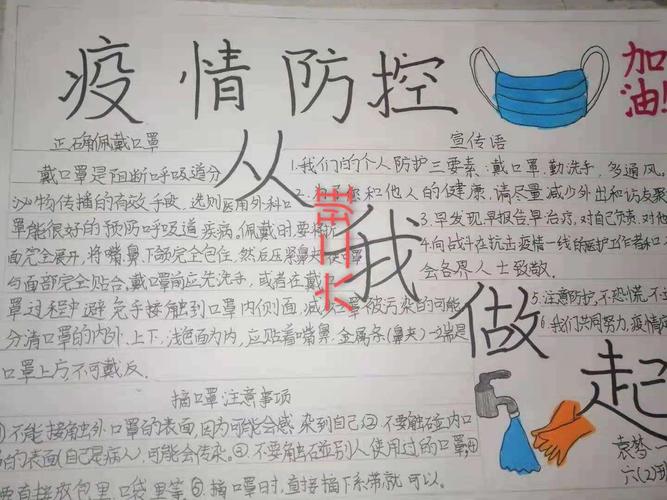 疫情防控
加油!
从我做起
正确佩戴口罩
戴口罩是阻断呼吸道分
泌物传播的有效手段,选则医用外科口
罩能很好的预防呼吸道疾病。佩戴时要将折
面完全展开,将嘴鼻、下颌完全包住,然后压紧鼻夹,使口罩
与面部完全贴合,戴口罩前应先洗手,或者在戴口
罩过程中避免手接触到口罩内侧面,减少口罩被污染的可能
分清口罩的内外、上下,浅色面为内,应贴着嘴鼻,金属条(鼻夹)一端是
口罩上方,不可戴反.
摘口罩注意事项
①不能接触外口罩的表面,因为可能会感染到自己②不要触碰内口
的表面(自己是病人),可能会传染。③不要触碰别人使用过的口罩
要直接放包里、口袋里等⑤摘口罩时,直接摘下系带就可以.
宣传语
1.我们的个人防护三要素:戴口罩.勤洗手、多通风。
2.和他人的健康,请尽量减少外出和访友聚
3.早发现,早报告,早治疗,对自己负责.对他
4.向战斗在抗击疫情一线的医护工作者和
会各界人士致敬.
5.注意防护,不恐慌,不
6.我们共同努力,疫情
袁梦一
六(2)班
第一卡